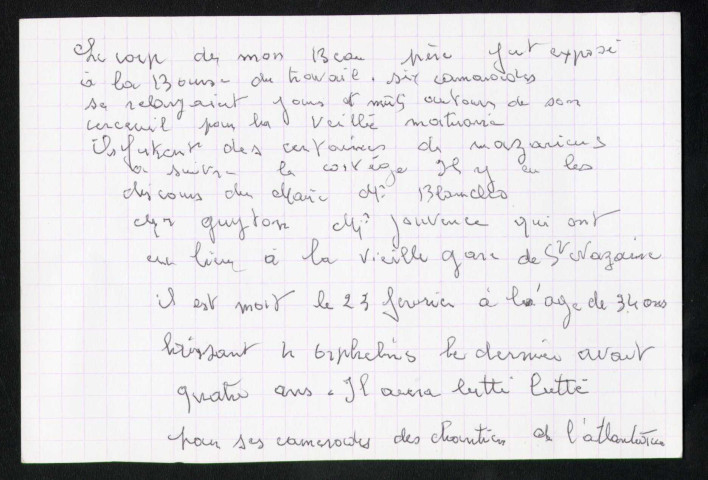 Le corp de mon Beau père fut exposé
à la Bourse du travail. six camarades
se relayaint jours et nuits autours de son
cerceuil pour la veillé
Ils furent des centaines de nazairiens
a suivre le cortège Il y eu les
discours du Maire Mr Blancho
Mr guyton Mr jouvence qui ont
eu lieu à la vieille gare de St Nazaire
il est mort le 23 fevrier à l'age de 34 ans
laissant 4 orphelins le dernier avait
quatre ans. Il aura lutté lutté
pour ses camarades des chantiers de l'atlantique